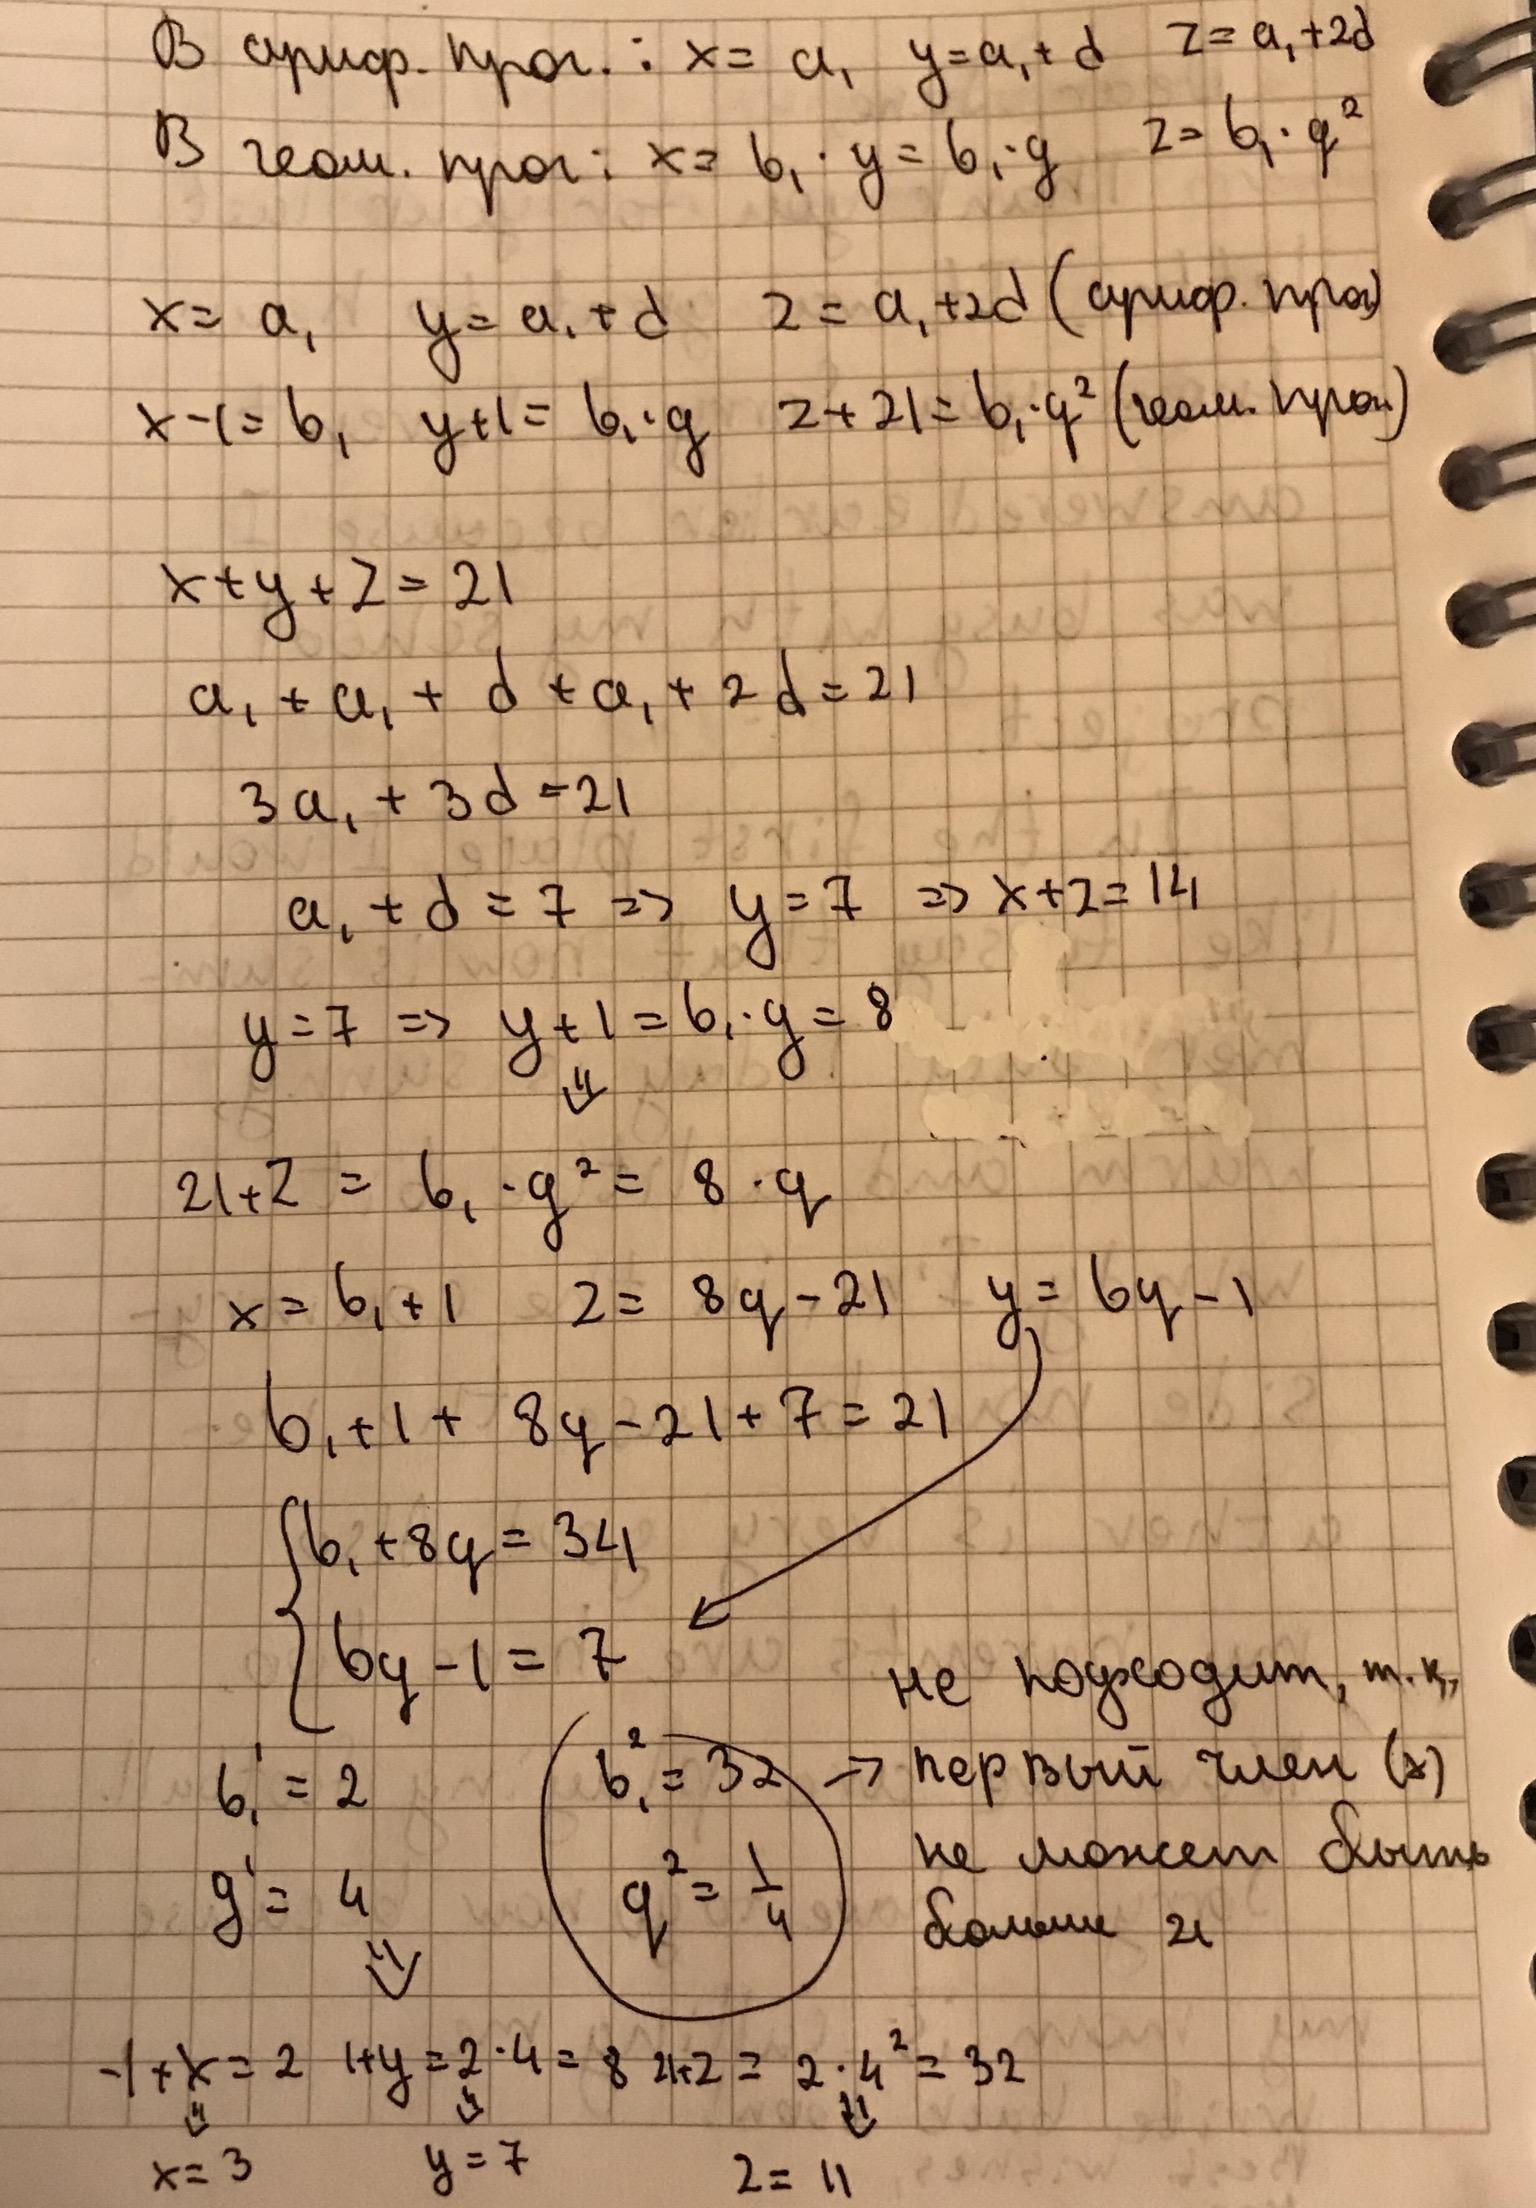 В ариф. прог. : x = a₁ y = a₁ + d z = a₁ + 2d
В геом. прог : x = b₁ · y = b₁ · q z = b₁ · q²
x = a₁ y = a₁ + d z = a₁ + 2d (ариф. прог)
x - 1 = b₁ y + 1 = b₁ · q z + 21 = b₁ · q² (геом. прог.)
x + y + z = 21
a₁ + a₁ + d + a₁ + 2d = 21
3a₁ + 3d = 21
a₁ + d = 7 => y = 7 => x + z = 14
y = 7 => y + 1 = b₁ · q = 8
⇓
21 + z = b₁ · q² = 8 · q
x = b₁ + 1 z = 8q - 21 y = bq - 1
b₁ + 1 + 8q - 21 + 7 = 21
{ b₁ + 8q = 34
bq - 1 = 7
не подходит, т.к.
b₁¹ = 2 b₁² = 32 → первый член (x)
не может быть
q¹ = 4 q² = 1/4
больше 21
⇓
-1 + x = 2 1 + y = 2 · 4 = 8 21 + z = 2 · 4² = 32
⇓ ⇓ ⇓
x = 3 y = 7 z = 11